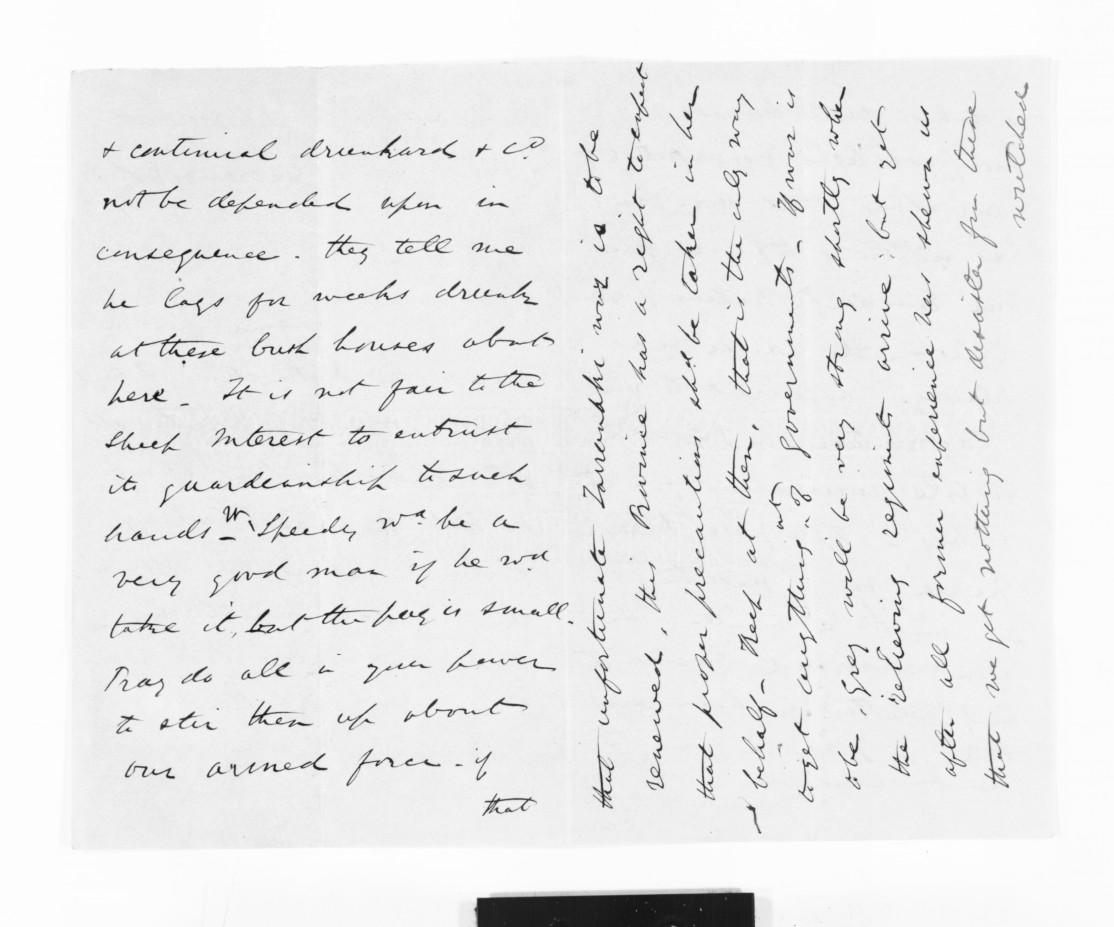 & continual drunkard & cd
not be depended upon in
consequence. they tell me
he lays for weeks drunk
at these bush houses about
here. It is not fair to the
Sheep Interest to entrust
its guardianship to such
hands - W. Speedy wd be a
very good man if he wd
take it, but the pay is small.
Pray do all in your power
to stir them up about
our armed force - if
that
that unfortunate Tarranaki war is to be
renewed, this Province has a right to expect
that proper precautions shd be taken in her
behalf - Peck at them, that is the only way
to get anything at of governments - If war is
to be, Grey will be very strong shortly when
the relieving regiments arrive; but yet
after all former experience has shewn us
that we get nothing but disaster from these
wretched